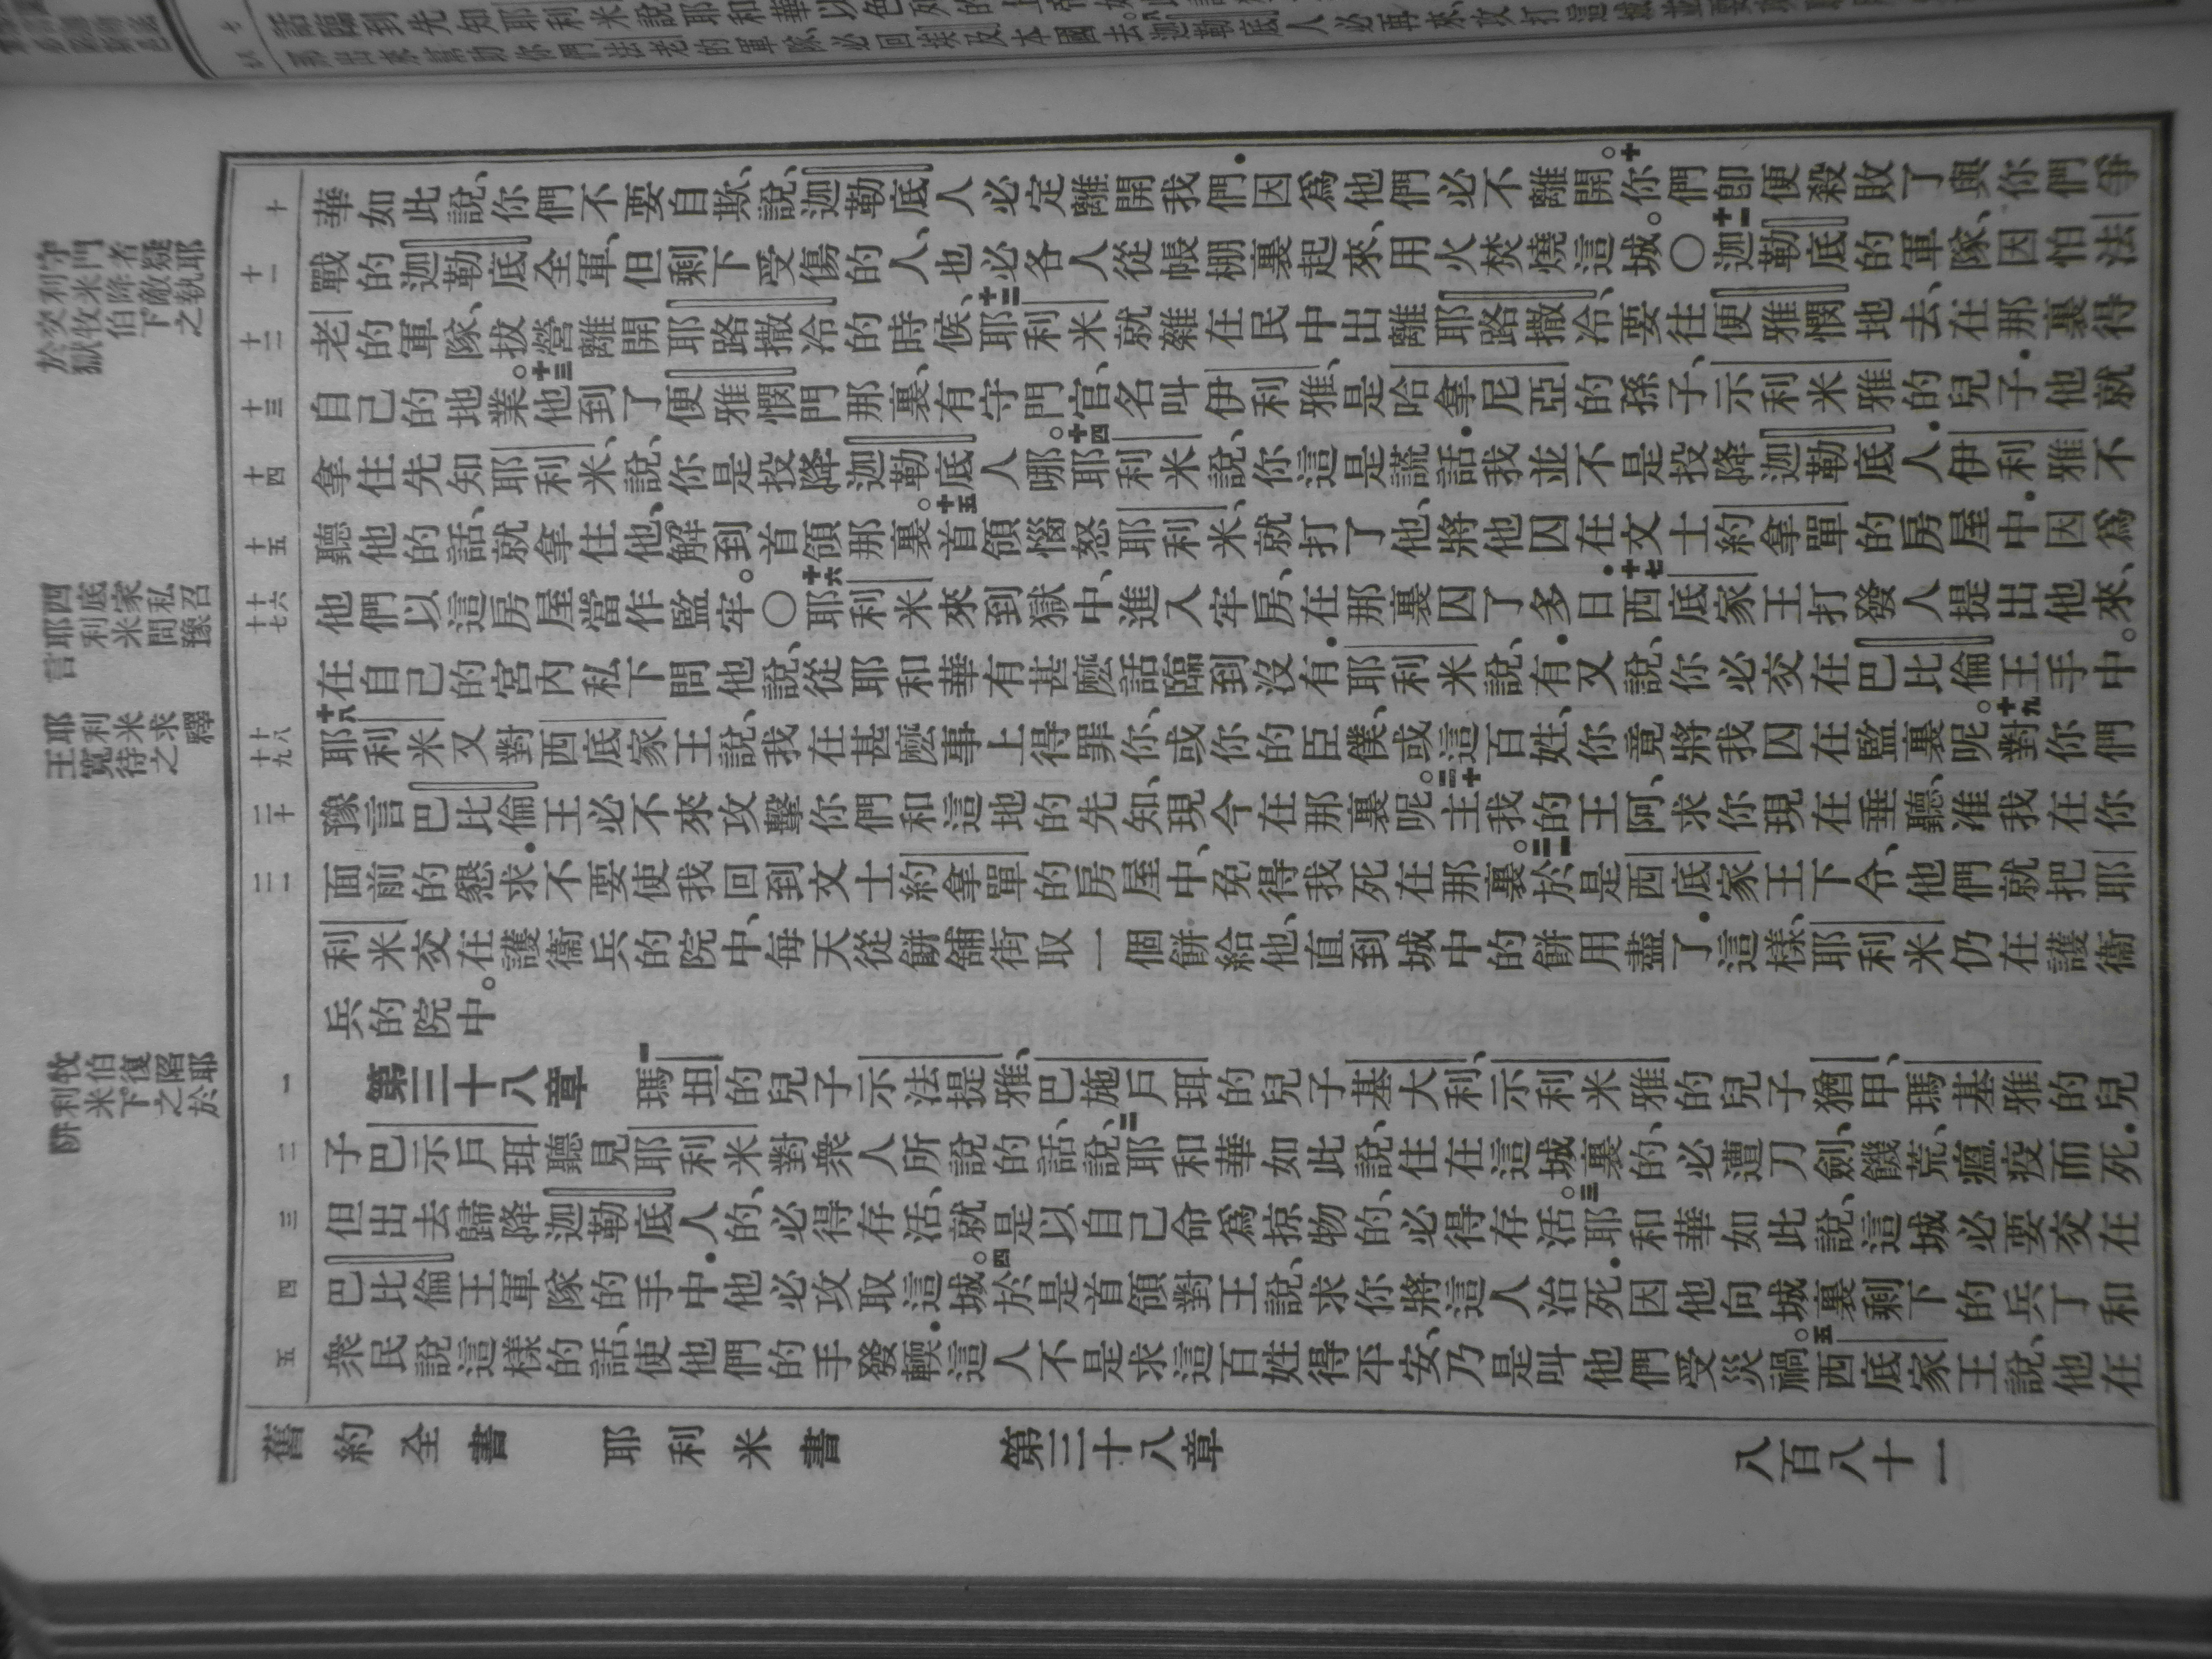 華如此說、你們不要自欺、說、迦勒底人必定離開我們．因爲他們必不離開。十你們卽便殺敗了與你們爭
戰的迦勒底全軍、但剩下受傷的人、也必各人從帳棚裏起來、用火焚燒這城。〇十一迦勒底的軍隊、因怕法
老的軍隊、拔營離開耶路撒冷的時候、十二耶利米就雜在民中出離耶路撒冷、要往便雅憫地去、在那裏得
自己的地業。十三他到了便雅憫門那裏、有守門官、名叫伊利雅、是哈拿尼亞的孫子、示利米雅的兒子．他就
拿住先知耶利米、說、你是投降迦勒底人哪。十四耶利米說、你這是謊話．我並不是投降迦勒底人．伊利雅不
聽他的話、就拿住他、解到首領那裏。十五首領惱怒耶利米、就打了他、將他囚在文士約拿單的房屋中．因爲
他們以這房屋當作監牢。〇十六耶利米來到獄中、進入牢房、在那裏囚了多日．十七西底家王打發人提出他來、
在自己的宮內私下問他說、從耶和華有甚麼話臨到沒有．耶利米說、有．又說、你必交在巴比倫王手中。
十八耶利米又對西底家王說、我在甚麼事上得罪你、或你的臣僕、或這百姓、你竟將我囚在監裏呢。十九對你們
豫言巴比倫王必不來攻擊你們和這地的先知、現今在那裏呢。二十主我的王阿、求你現在垂聽、准我在你
面前的懇求．不要使我回到文士約拿單的房屋中、免得我死在那裏。二一於是西底家王下令、他們就把耶
利米交在護衞兵的院中、每天從餅舖街取一個餅給他、直到城中的餅用盡了．這樣、耶利米仍在護衞
兵的院中。
第三十八章 一瑪坦的兒子示法提雅、巴施戶珥的兒子基大利、示利米雅的兒子猶甲、瑪基雅的兒
子巴示戶珥聽見耶利米對衆人所說的話、說、二耶和華如此說、住在這城裏的、必遭刀劍、饑荒、瘟疫而死．
但出去歸降迦勒底人的、必得存活、就是以自己命爲掠物的、必得存活。三耶和華如此說、這城必要交在
巴比倫王軍隊的手中．他必攻取這城。四於是首領對王說、求你將這人治死．因他向城裏剩下的兵丁和
衆民說這樣的話、使他們的手發輭．這人不是求這百姓得平安、乃是叫他們受災禍。五西底家王說、他在
舊約全書 耶利米書 第三十八章 八百八十一
十
十一
十二
十三
十四
十五
十六
十七
十八
十九
二十
二一
一
二
三
四
五
守門者疑耶
利米降敵執之
交牧伯下
於獄
四底家私召
耶利米問豫
言
耶利米求釋
王寬待之
牧伯復陷耶
利米下之於
阱